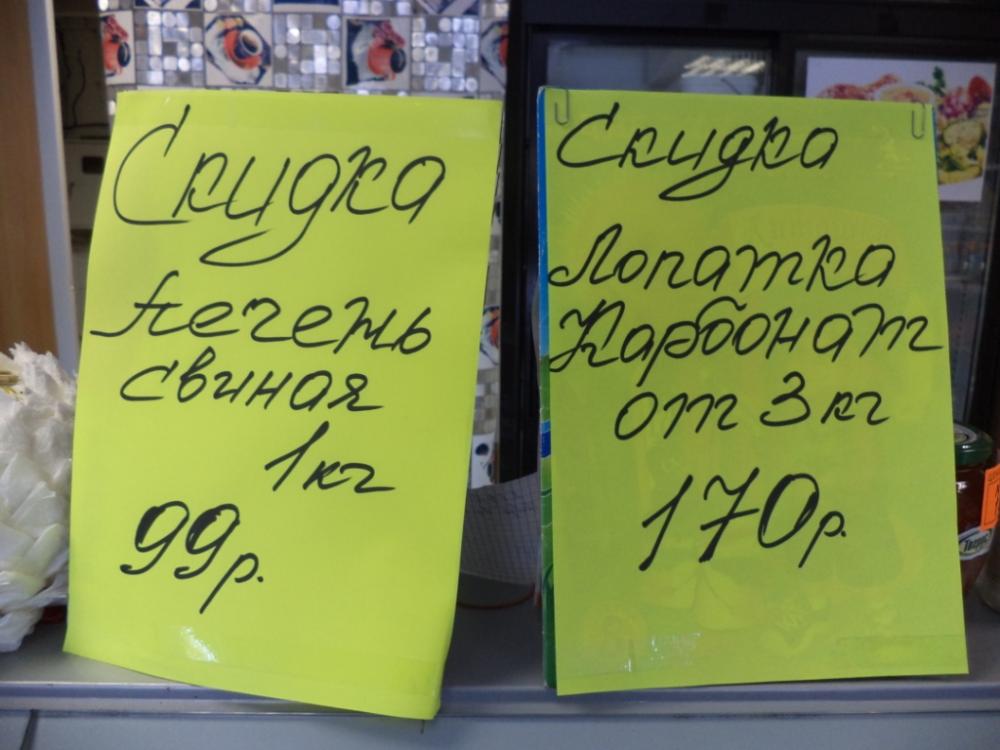 Скидка
Печень
свиная
1 кг
99 р.
Скидка
Лопатка
Карбонат
от 3 кг
170 р.